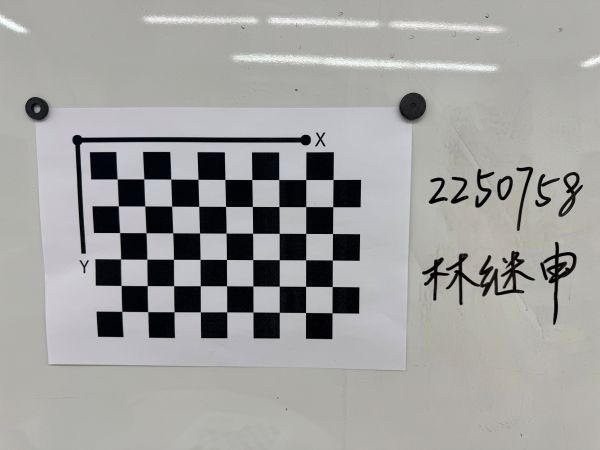 X
Y
2250758
林继申